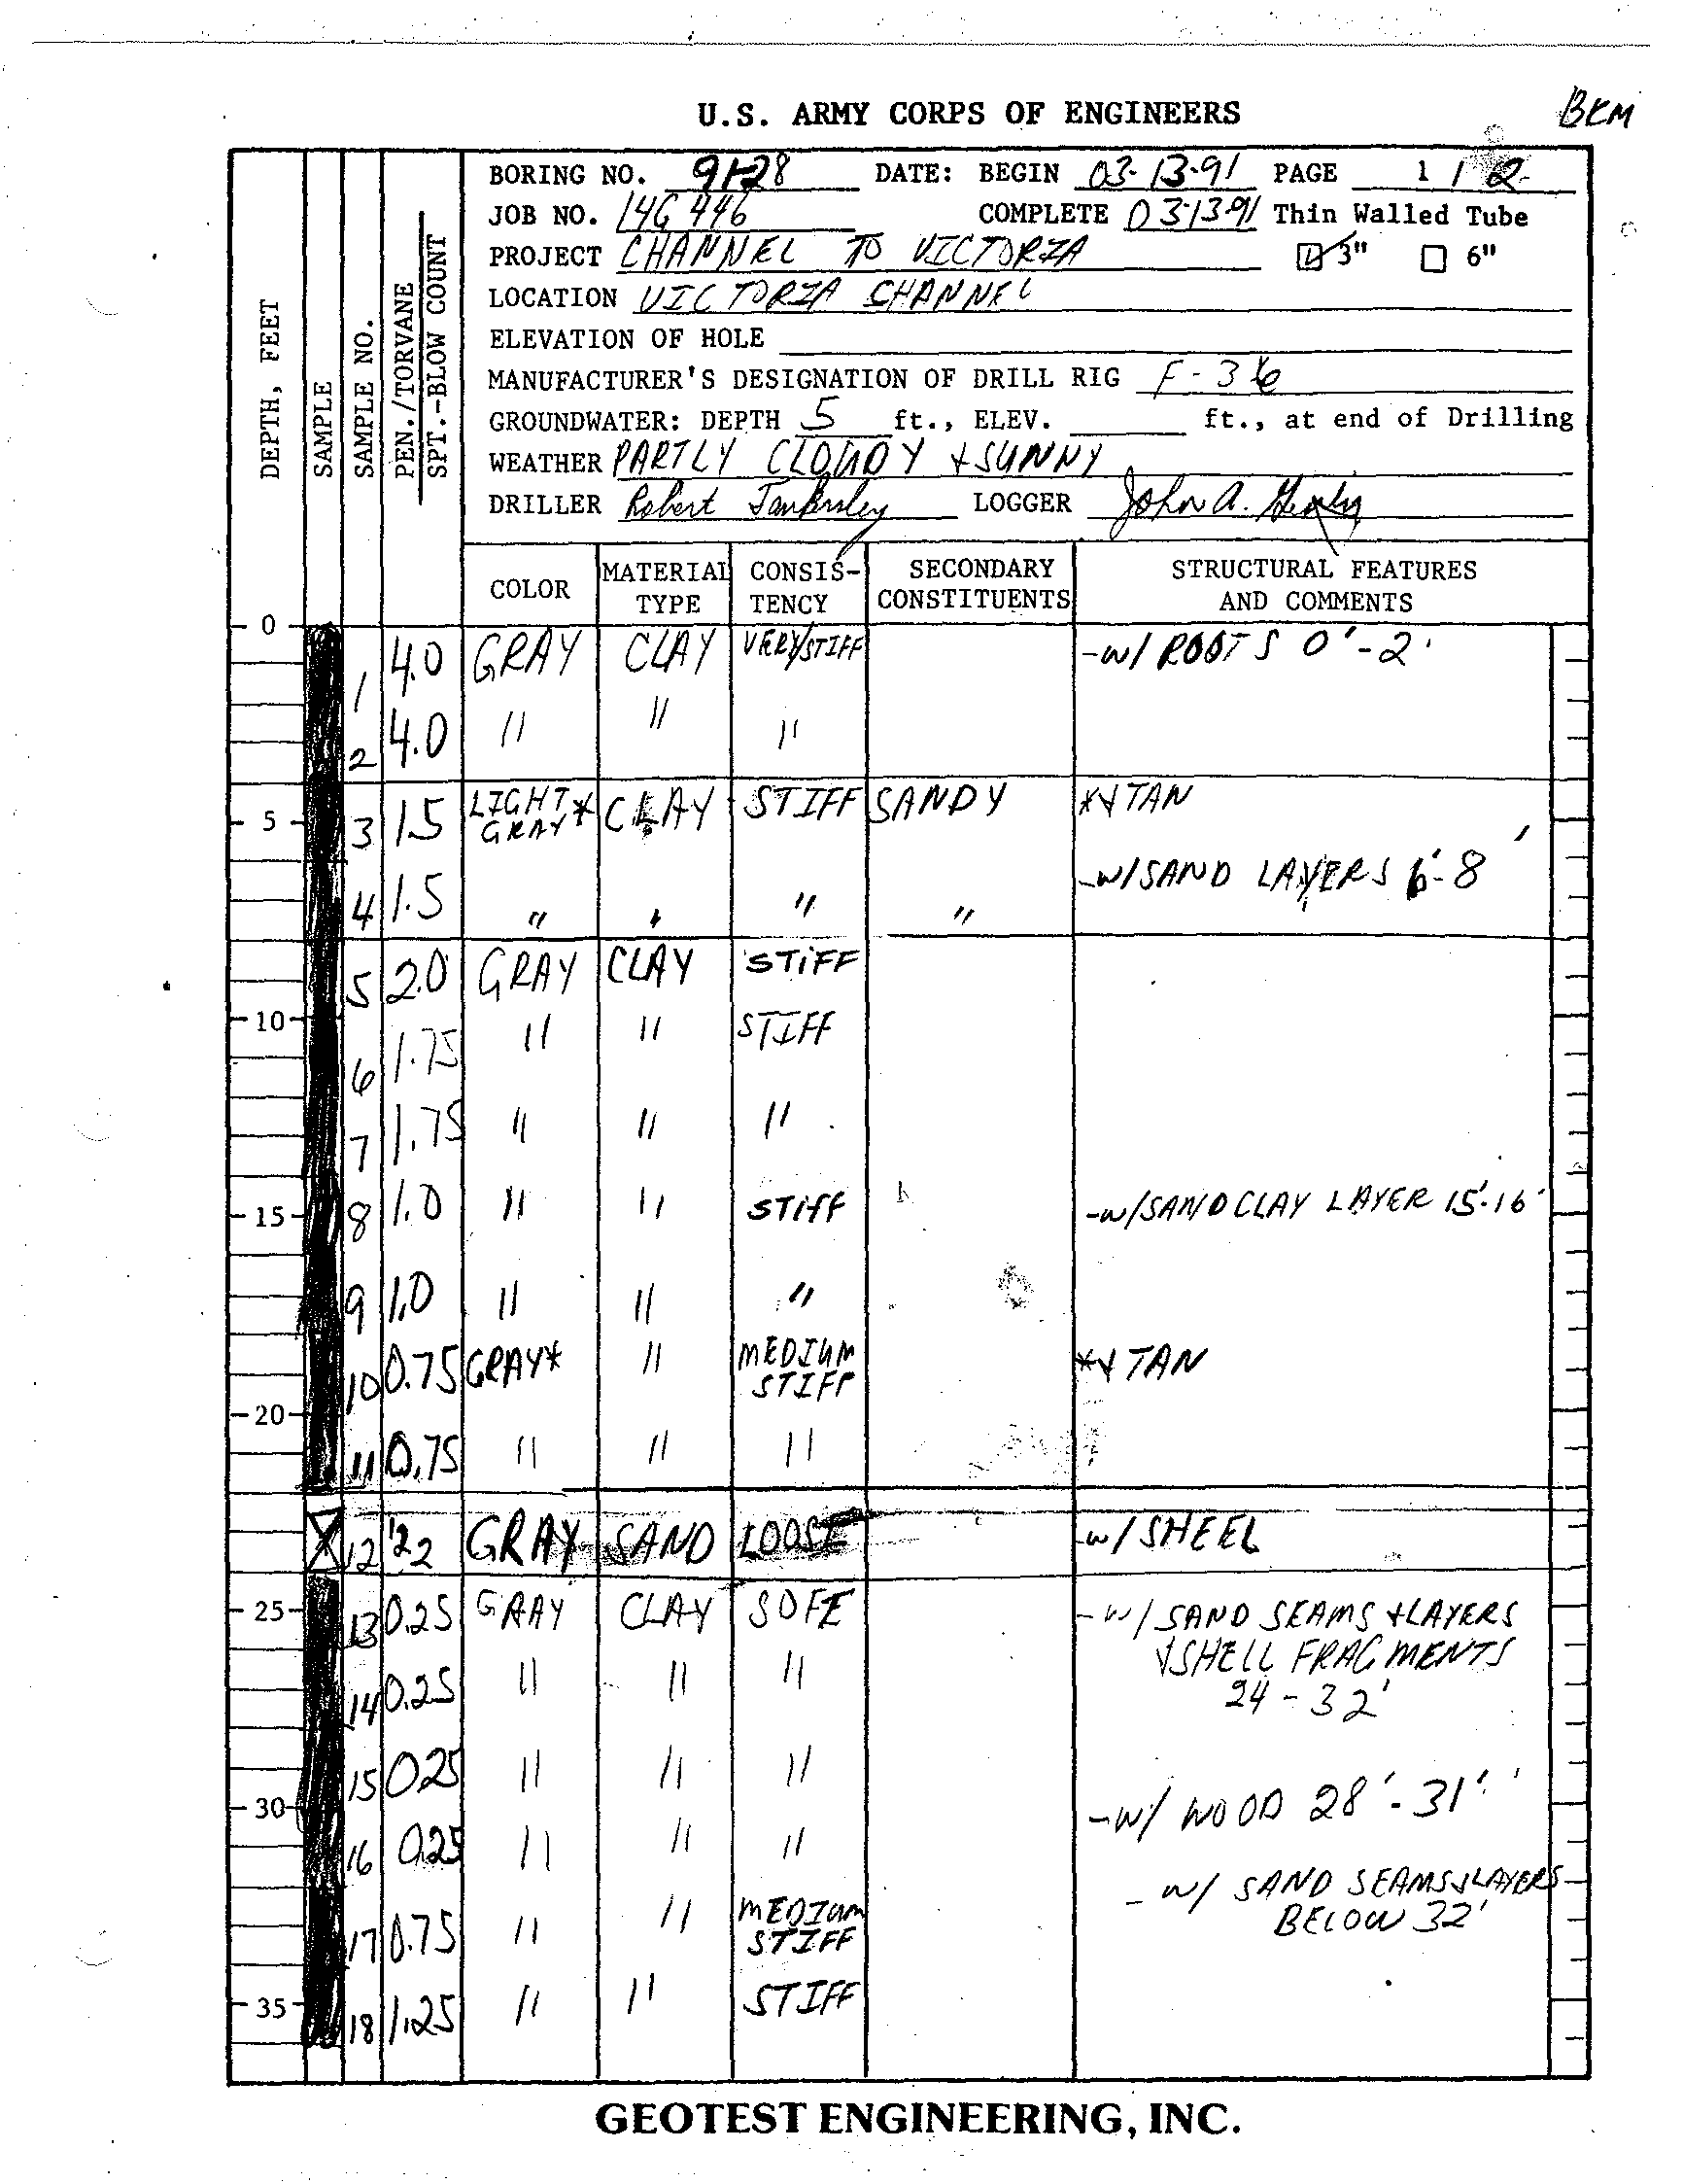 U.S. ARMY CORPS OF ENGINEERS
BKM
BORING NO. 91-28 DATE: BEGIN 03-13-91 PAGE 1 / 2
JOB NO. 14G 446 COMPLETE 03-13-91 Thin Walled Tube
PROJECT CHANNEL TO VICTORIA 3" 6"
LOCATION VICTORIA CHANNEL
ELEVATION OF HOLE
MANUFACTURER'S DESIGNATION OF DRILL RIG F-36
GROUNDWATER: DEPTH 5 ft., ELEV. ft., at end of Drilling
WEATHER PARTLY CLOUDY + SUNNY
DRILLER Robert LOGGER John A.
DEPTH, FEET
SAMPLE
SAMPLE NO.
PEN./TORVANE
SPT.-BLOW COUNT
COLOR MATERIAL TYPE CONSIS-TENCY SECONDARY CONSTITUENTS STRUCTURAL FEATURES AND COMMENTS
0
1 4.0 GRAY CLAY VERY/STIFF -W/ ROOTS 0'-2'
2 4.0 " " "
5 3 1.5 LIGHT GRAY * CLAY STIFF SANDY *& TAN
-W/SAND LAYERS 6'-8'
4 1.5 " " " "
5 2.0 GRAY CLAY STIFF
10
6 1.75 " " STIFF
7 1.75 " " "
15 8 1.0 " " STIFF -W/SAND CLAY LAYER 15'-16'
9 1.0 " " "
10 0.75 GRAY* " MEDIUM STIFF *& TAN
20
11 0.75 " " "
12 22 GRAY SAND LOOSE -W/ SHEEL
25 13 0.25 GRAY CLAY SOFT -W/ SAND SEAMS & LAYERS
& SHELL FRAGMENTS
24-32'
14 0.25 " " "
15 0.25 " " "
30 -W/ WOOD 28'-31'
16 0.25 " " "
-W/ SAND SEAMS & LAYERS
BELOW 32'
17 0.75 " " MEDIUM STIFF
35 18 1.25 " " STIFF
GEOTEST ENGINEERING, INC.